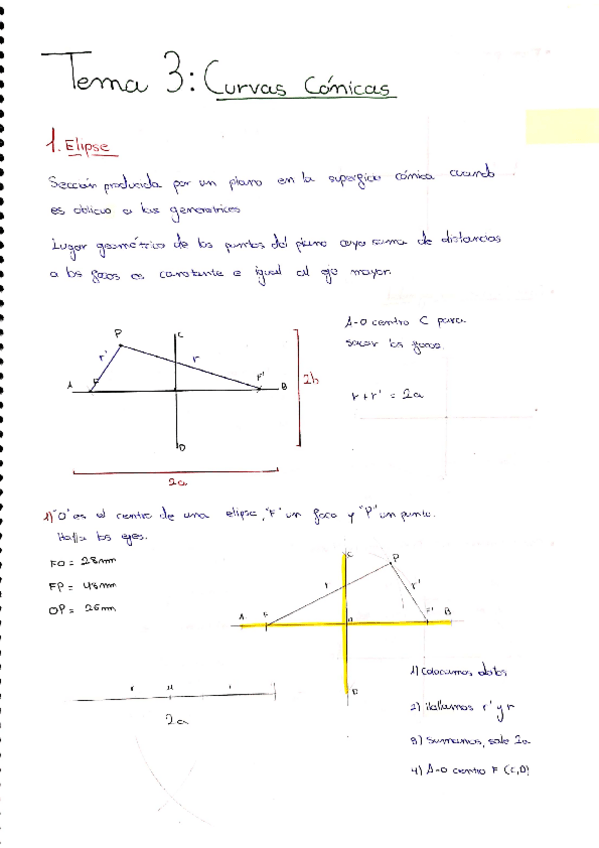 Tema 3: Curvas Cónicas
1. Elipse
Sección producida por un plano en la superficie cónica cuando
es oblicuo a las generatrices
Lugar geométrico de los puntos del plano cuya suma de distancias
a los focos es constante e igual al eje mayor.
A-O centro C para
sacar los focos.
r + r' = 2a
P
C
r'
r
A
F
F'
B
2b
D
2a
1) "O" es el centro de una elipse, "F" un foco y "P" un punto.
Halla los ejes.
FO = 28mm
FP = 48mm
OP = 26mm
C
P
r
r'
A
F
F'
B
D
2a
1) Colocamos datos
2) Hallamos r' y r
3) Sumamos, sale 2a
4) A-O centro F (C,D)